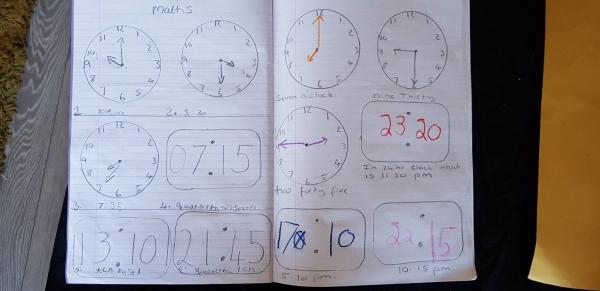 Maths
12 1 2 3 4 5 6 7 8 9 10 11
12 1 2 3 4 5 6 7 8 9 10 11
1.
2. 3 30
12 1 2 3 4 5 6 7 8 9 10 11
07:15
3. 7:35
4. quarter past seven
13:10
21:45
5. ten past 1
6. quarter ten
12 1 2 3 4 5 6 7 8 9 10 11
12 1 2 3 4 5 6 7 8 9 10 11
Seven o'clock
nine Thirty
12 1 2 3 4 5 6 7 8 9 10 11
23:20
two forty five
In 24 hr clock which
is 11 20 pm
17:10
22:15
5 10 pm.
10.15 pm.